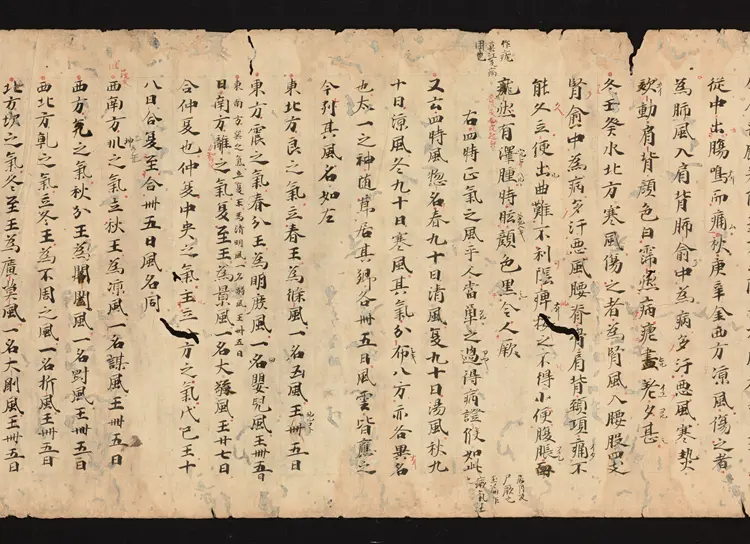 從中出腸鳴而痛秋庚辛金西方涼風傷之者
為肺風入肩背肺俞中為病多汗悪風寒熱
欬動肩背顏色白然病疟晝老夕甚
冬壬癸水北方寒風傷之者為腎風入腰股四支
腎俞中為病多汗悪風腰脊骨肩背頸項痛不
能久立便出曲難不利隂痺按之不得小便腹脹面
痝然有浮腫時眩顏色黒令人厥
右四時正氣之風平人當單之過得病證候如此
又云四時風惣名春九十日清風夏九十日湯風秋九
十日涼風冬九十日寒風其氣分布八方亦各異名
也太一之神随節居其郷各卌五日風雲皆應之
今列其風名如左
東北方艮之氣立春王為條風一名凶風王卌五日
東方震之氣春分王為明庶風一名嬰兒風王卌五日
東南方巽之氣立夏王為清明風一名弱風王卌五日
日南方離之氣夏至王為景風一名大弱風王廿七日
合仲夏也仲夏中央之氣王立方之氣戊己王十
八日合夏至合卌五日風名同
西南方巛之氣立秋王為涼風一名謀風王卌五日
西方兌之氣秋分王為閶闔風一名剛風王卌五日
西北方乾之氣立冬王為不周之風一名折風王卌五日
北方坎之氣冬至王為廣莫風一名大剛風王卌五日